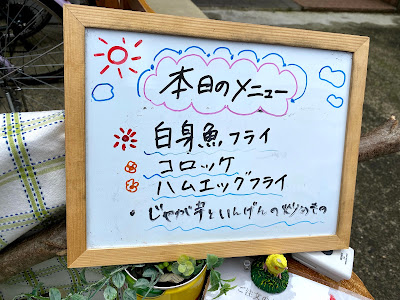 本日のメニュー
白身魚フライ
コロッケ
ハムエッグフライ
・じゃが芋といんげんの炒めもの